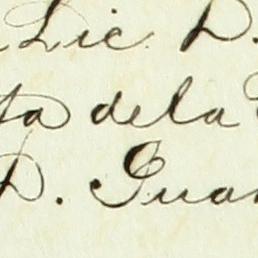 Lic. D.
ta dela
D. Juan